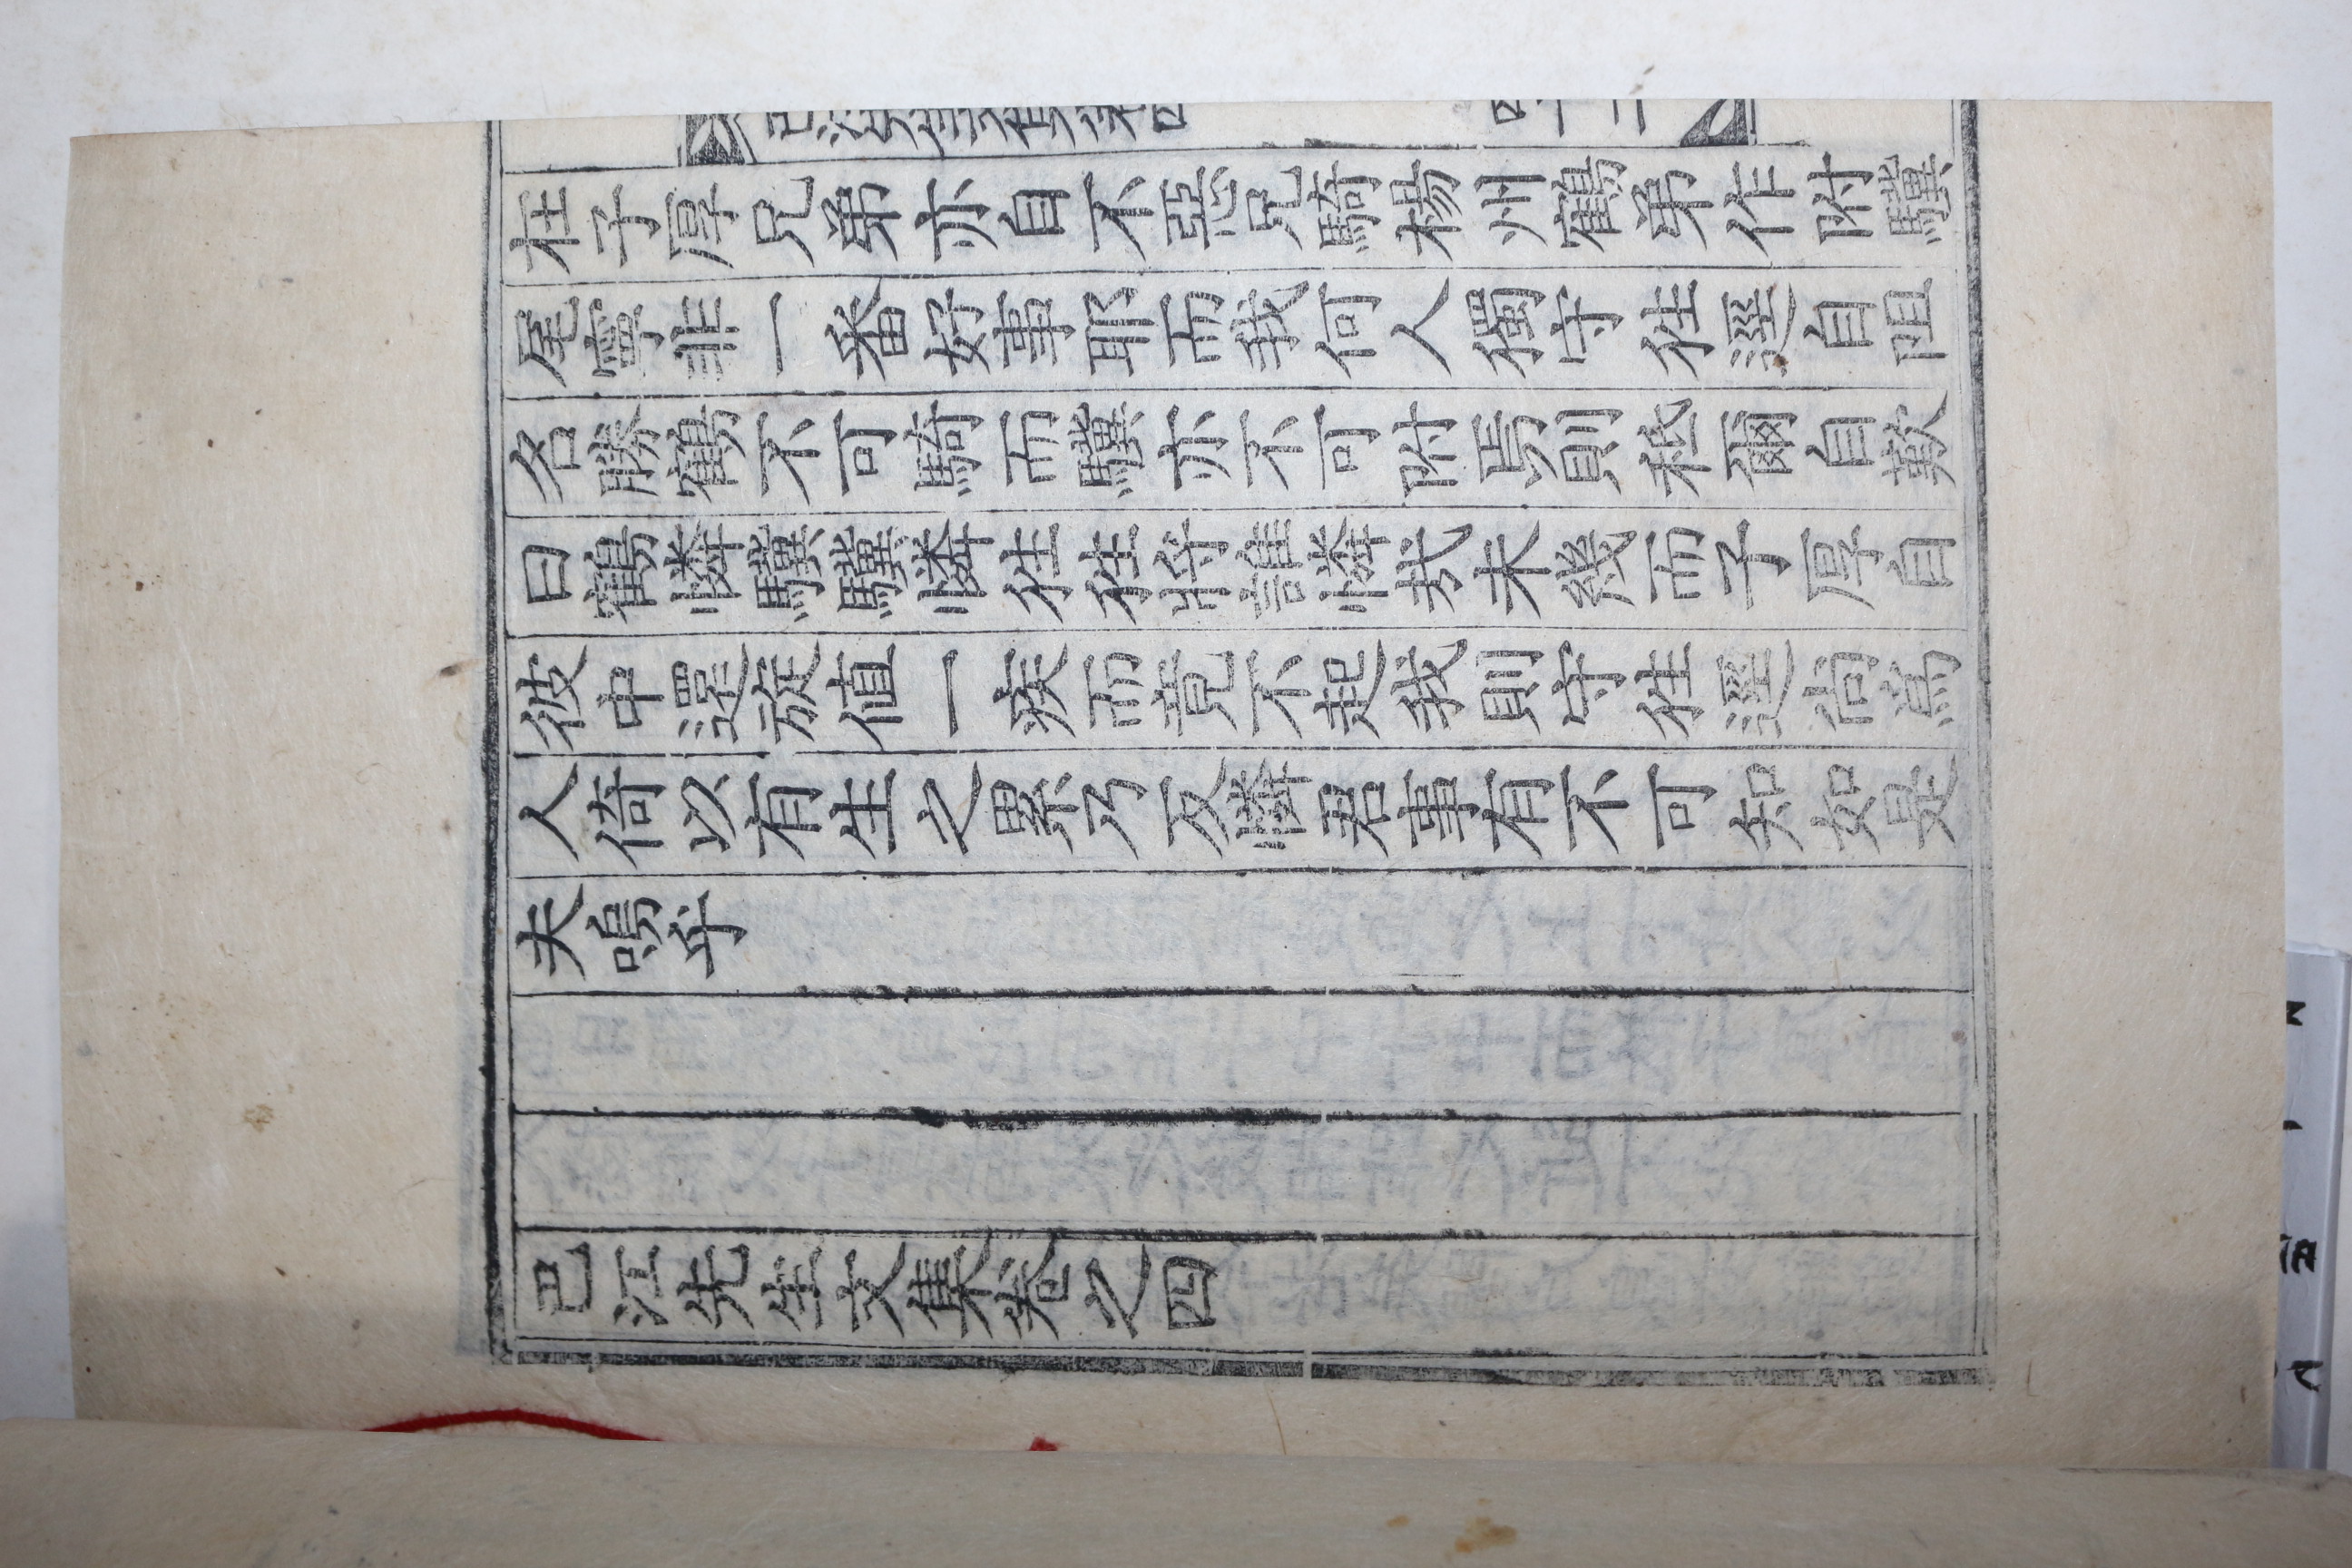 在子厚兄弟亦自不惡兄騎楊州鶴弟作附驥
尾寧非一番好事耶而我何人獨守徃逕自阻
名勝鶴不可騎而驥亦不可附焉則秪爾自歎
曰鶴憐驥驥憐徃徃將誰憐㦲未幾而子厚自
彼中還旋値一疾而竟不起我則守徃逕尙爲
人倚以有生之累乃反憐君事有不可知如是
夫嗚乎
巴江先生文集卷之四